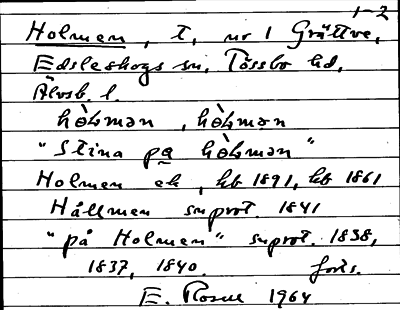 1-2
Holmen, t, nr 1 Gröttve,
Edsleskogs sn, Tössbo hd,
Älvsb. l.
hòLmən, hòLmən
"Stina pa hòLmən"
Holmen ek, hb 1891, hb 1861
Hållmen snprot. 1841
"på Holmen" snprot. 1838,
1837, 1840. forts.
E. Rosne 1964